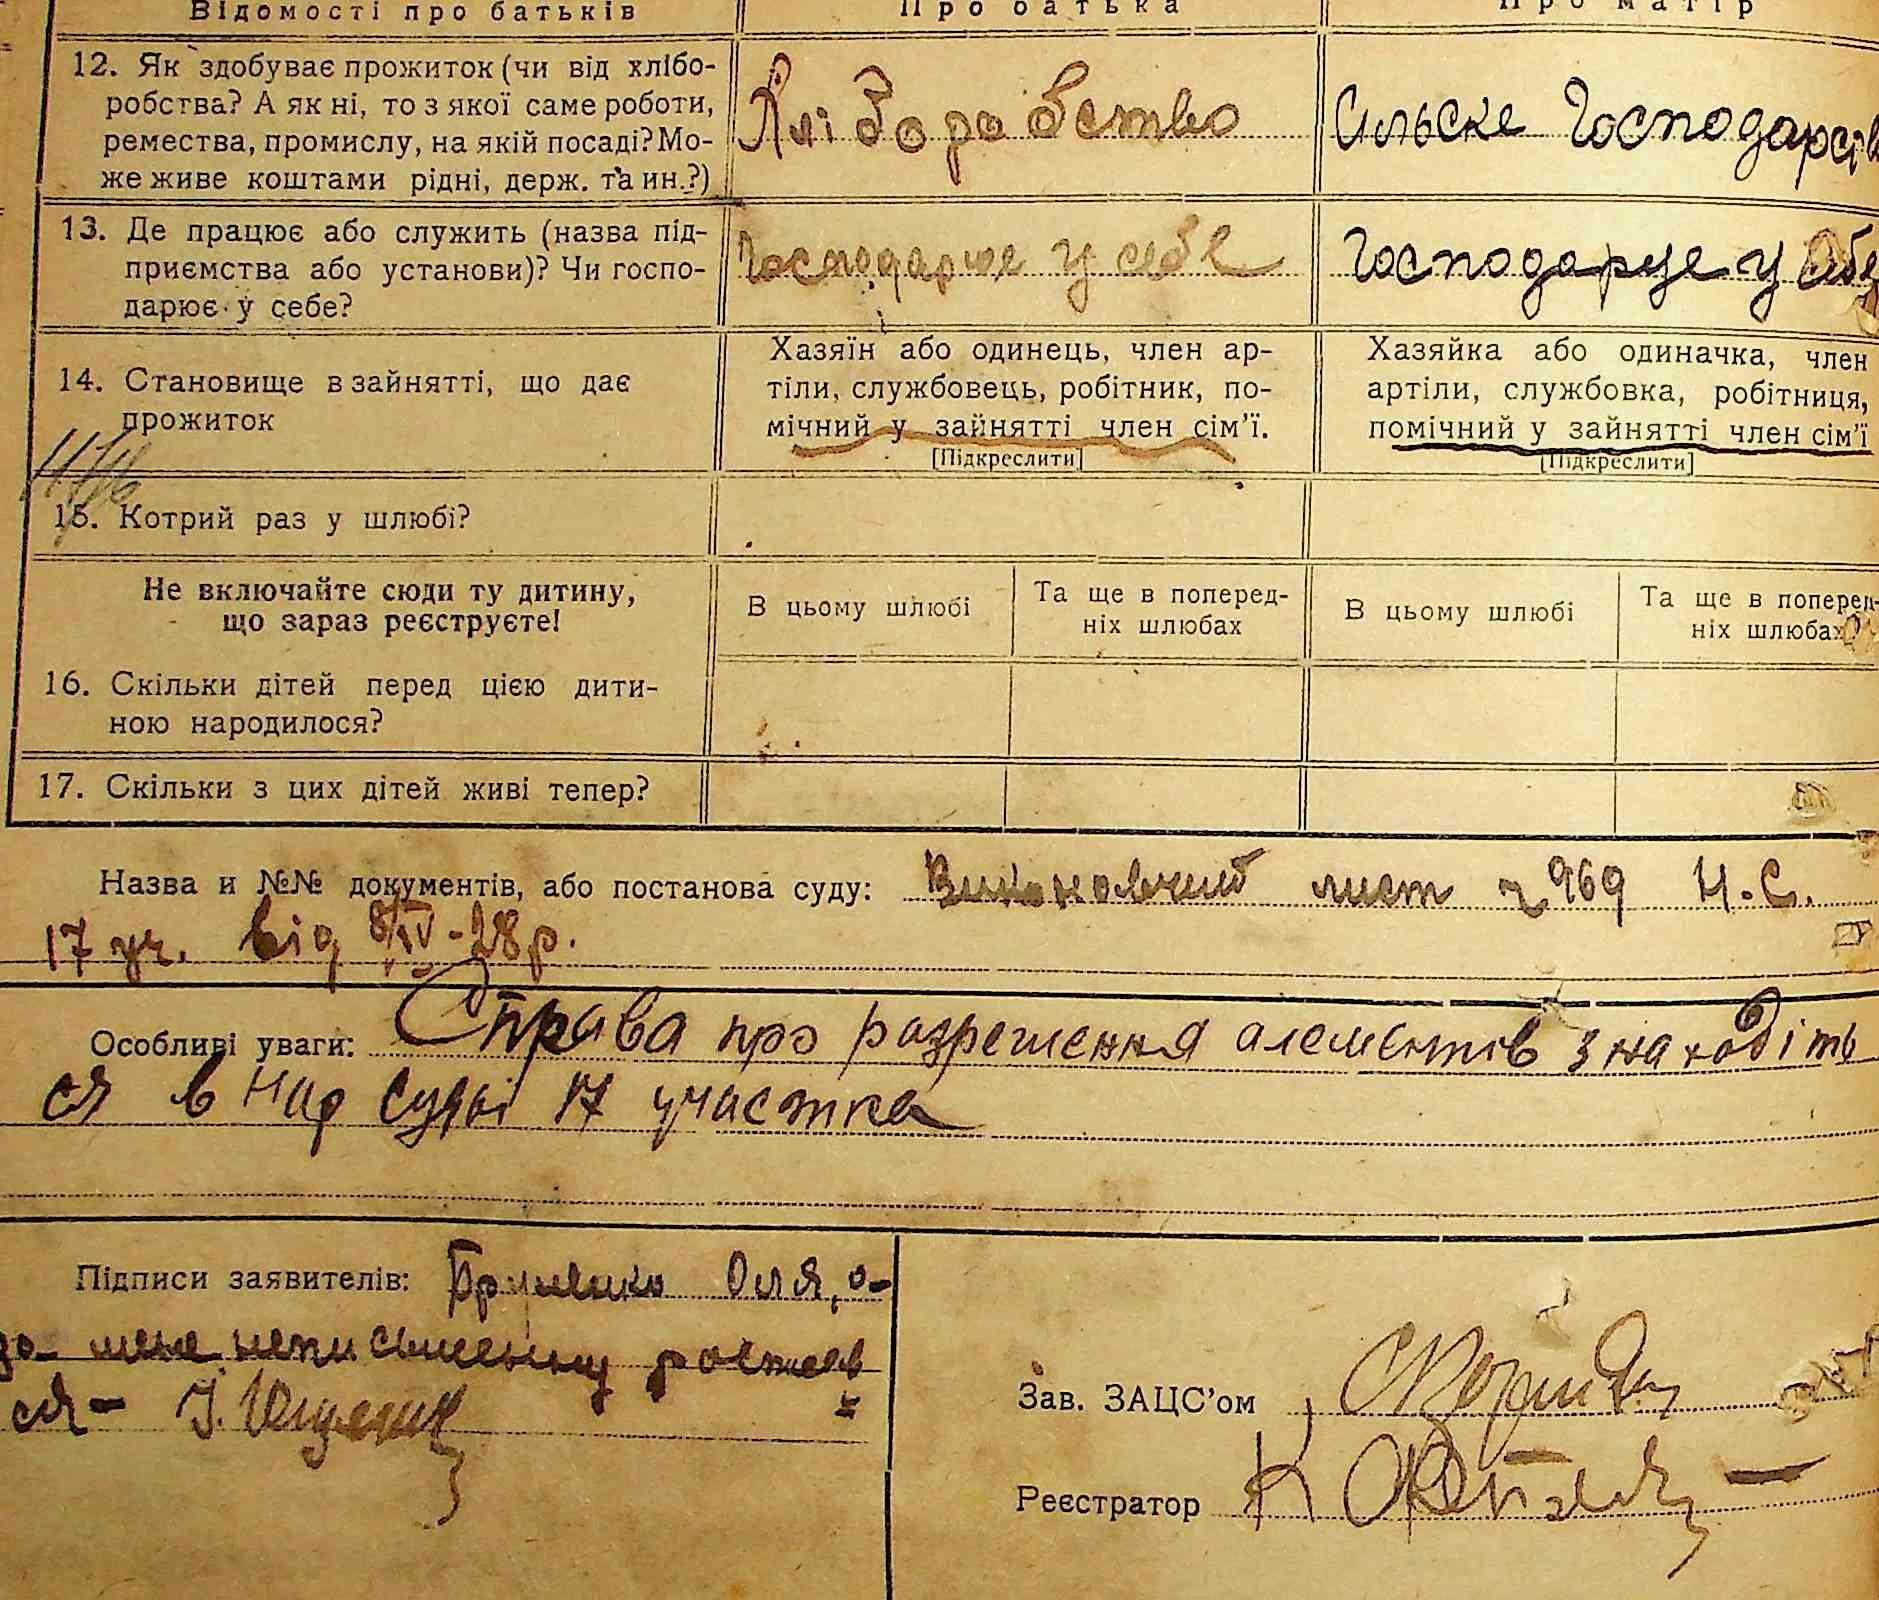 Відомості про батьків
Про батька
Про матір
12. Як здобуває прожиток (чи від хлібо-
робства? А як ні, то з якої саме роботи,
ремества, промислу, на якій посаді? Мо-
же живе коштами рідні, держ. та ин.?)
Хліборобство
Сільске Господарств
13. Де працює або служить (назва під-
приємства або установи)? Чи госпо-
дарює у себе?
Господарює у себе
Господарує у себе
14. Становище в зайнятті, що дає
прожиток
Хазяїн або одинець, член ар-
тіли, службовець, робітник, по-
мічний у зайнятті член сім'ї.
[Підкреслити]
Хазяйка або одиначка, член
артіли, службовка, робітниця,
помічний у зайнятті член сім'ї
[Підкреслити]
15. Котрий раз у шлюбі?
Не включайте сюди ту дитину,
що зараз реєструєте!
В цьому шлюбі
Та ще в поперед-
ніх шлюбах
В цьому шлюбі
Та ще в поперед-
ніх шлюбах
16. Скільки дітей перед цією дити-
ною народилося?
17. Скільки з цих дітей живі тепер?
Назва и №№ документів, або постанова суду: Виконавчий лист 969 Н.С.
17 уч. від 8/IV-28р.
Особливі уваги: Справа про разрешення алементів знаходіть
ся в нар суді 17 участка
Підписи заявителів: Оля, о-
неписьменну
ся -
Зав. ЗАЦС'ом
Реєстратор К